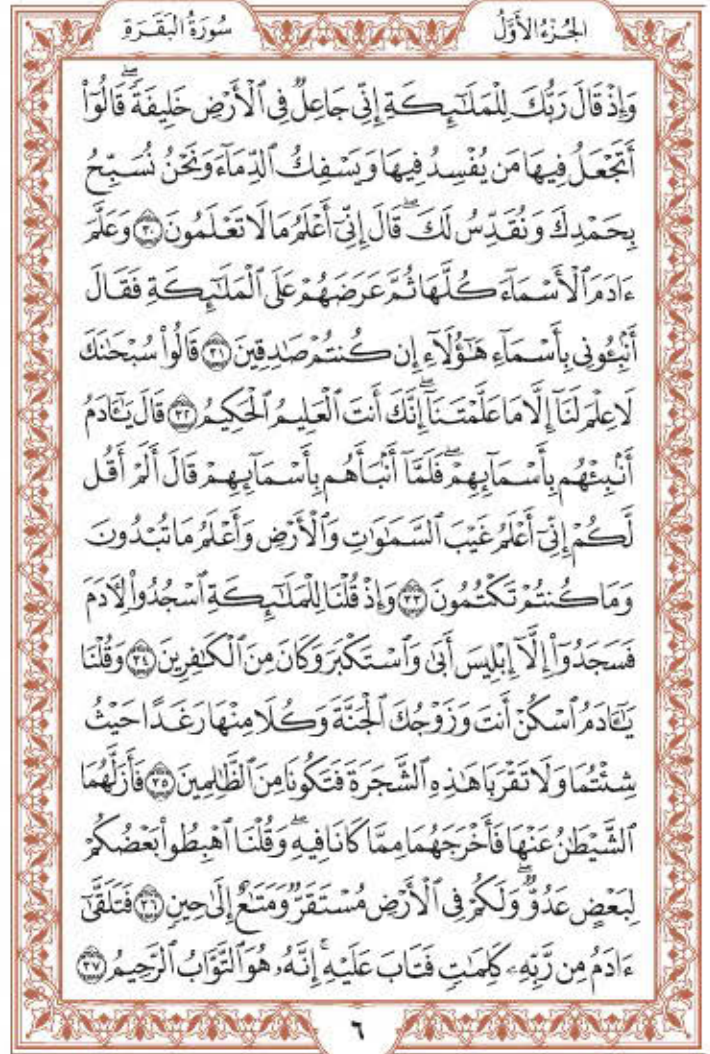 الجُزْءُ الأَوَّلُ سُورَةُ البَقَرَةِ
وَإِذْ قَالَ رَبُّكَ لِلْمَلَٰٓئِكَةِ إِنِّى جَاعِلٌ فِى ٱلْأَرْضِ خَلِيفَةً ۖ قَالُوٓا۟
أَتَجْعَلُ فِيهَا مَن يُفْسِدُ فِيهَا وَيَسْفِكُ ٱلدِّمَآءَ وَنَحْنُ نُسَبِّحُ
بِحَمْدِكَ وَنُقَدِّسُ لَكَ ۖ قَالَ إِنِّىٓ أَعْلَمُ مَا لَا تَعْلَمُونَ ٣٠ وَعَلَّمَ
ءَادَمَ ٱلْأَسْمَآءَ كُلَّهَا ثُمَّ عَرَضَهُمْ عَلَى ٱلْمَلَٰٓئِكَةِ فَقَالَ
أَنۢبِـُٔونِى بِأَسْمَآءِ هَٰٓؤُلَآءِ إِن كُنتُمْ صَٰدِقِينَ ٣١ قَالُوا۟ سُبْحَٰنَكَ
لَا عِلْمَ لَنَآ إِلَّا مَا عَلَّمْتَنَآ ۖ إِنَّكَ أَنتَ ٱلْعَلِيمُ ٱلْحَكِيمُ ٣٢ قَالَ يَٰٓـَٔادَمُ
أَنۢبِئْهُم بِأَسْمَآئِهِمْ ۖ فَلَمَّآ أَنۢبَأَهُم بِأَسْمَآئِهِمْ قَالَ أَلَمْ أَقُل
لَّكُمْ إِنِّىٓ أَعْلَمُ غَيْبَ ٱلسَّمَٰوَٰتِ وَٱلْأَرْضِ وَأَعْلَمُ مَا تُبْدُونَ
وَمَا كُنتُمْ تَكْتُمُونَ ٣٣ وَإِذْ قُلْنَا لِلْمَلَٰٓئِكَةِ ٱسْجُدُوا۟ لِءَادَمَ
فَسَجَدُوٓا۟ إِلَّآ إِبْلِيسَ أَبَىٰ وَٱسْتَكْبَرَ وَكَانَ مِنَ ٱلْكَٰفِرِينَ ٣٤ وَقُلْنَا
يَٰٓـَٔادَمُ ٱسْكُنْ أَنتَ وَزَوْجُكَ ٱلْجَنَّةَ وَكُلَا مِنْهَا رَغَدًا حَيْثُ
شِئْتُمَا وَلَا تَقْرَبَا هَٰذِهِ ٱلشَّجَرَةَ فَتَكُونَا مِنَ ٱلظَّٰلِمِينَ ٣٥ فَأَزَلَّهُمَا
ٱلشَّيْطَٰنُ عَنْهَا فَأَخْرَجَهُمَا مِمَّا كَانَا فِيهِ ۖ وَقُلْنَا ٱهْبِطُوا۟ بَعْضُكُمْ
لِبَعْضٍ عَدُوٌّ ۖ وَلَكُمْ فِى ٱلْأَرْضِ مُسْتَقَرٌّ وَمَتَٰعٌ إِلَىٰ حِينٍ ٣٦ فَتَلَقَّىٰٓ
ءَادَمُ مِن رَّبِّهِۦ كَلِمَٰتٍ فَتَابَ عَلَيْهِ ۚ إِنَّهُۥ هُوَ ٱلتَّوَّابُ ٱلرَّحِيمُ ٣٧
٦